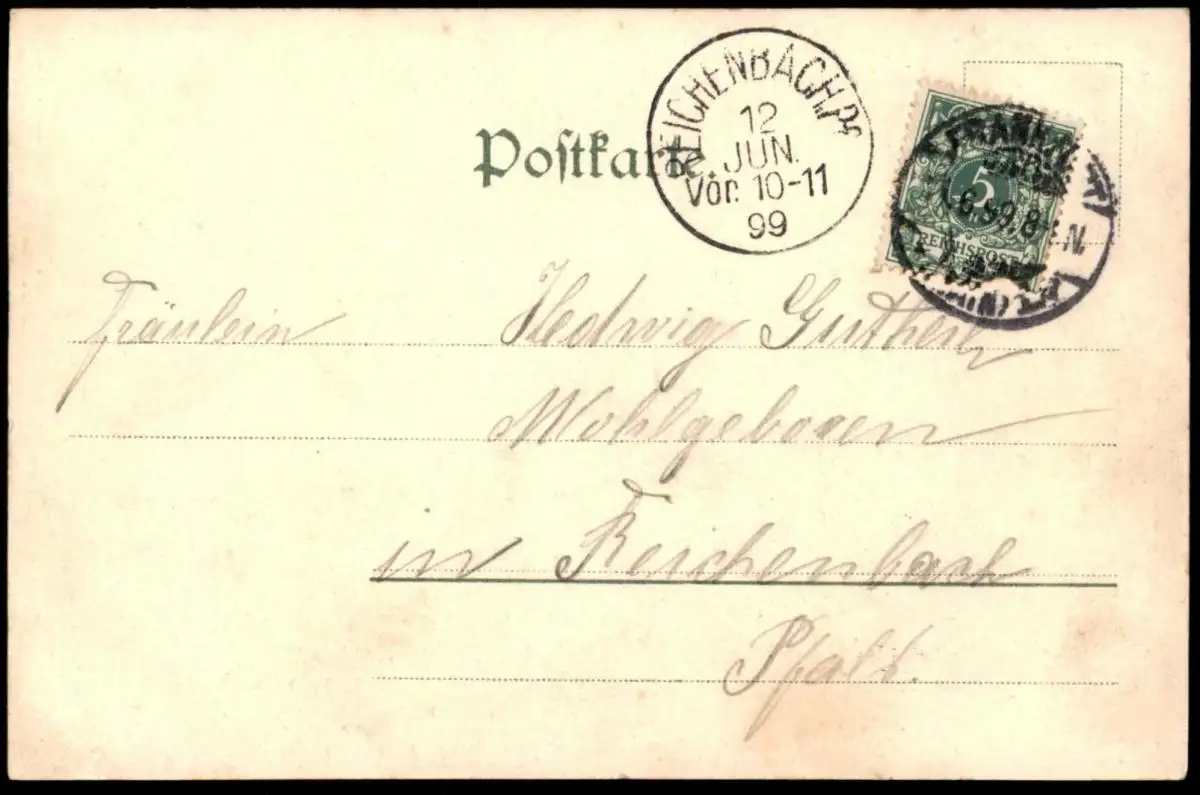 Postkarte.
REICHENBACH, Pf.
12
JUN.
Vor. 10-11
99
5
REICHSPOST
6.99.8
N.
Fräulein Hedwig Gutheil
Wohlgeboren
in Reichenbach
Pfalz.